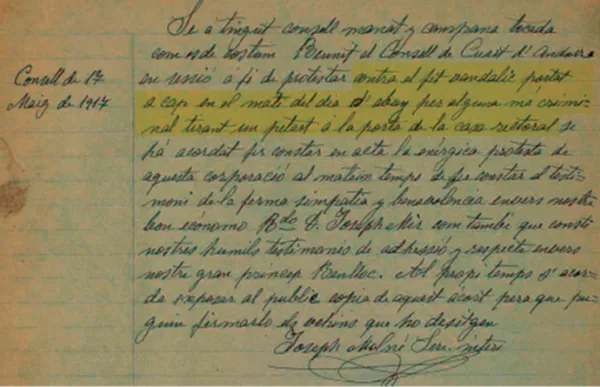 Consell de 17
Maig de 1917
Se a tingut consell manat y campana tocada
com es de costum Reunit el Consell de Cuart d'Andorra
en sesió a fi de protestar contra el fet vandalic portat
a cap en el mati del dia d'abuy per alguna má crimi-
nal tirant un petart à la porta de la casa rectoral se
há acordat fer constar en acta la enèrgica protesta de
aquesta corporació al mateix temps de fer constar el testi-
moni de la ferma simpatia y benevolencia envers nostre
bon ecónomo Rdo D. Joseph Mir com també que consti
nostres humils testimonis de adhessió y respecte envers
nostre gran princep Benlloc. Al propi temps s'acor-
da exposar al public copia de aquest acort pera que pu-
guin firmarlo els vehins que ho desitgen
Joseph Molné Secr.